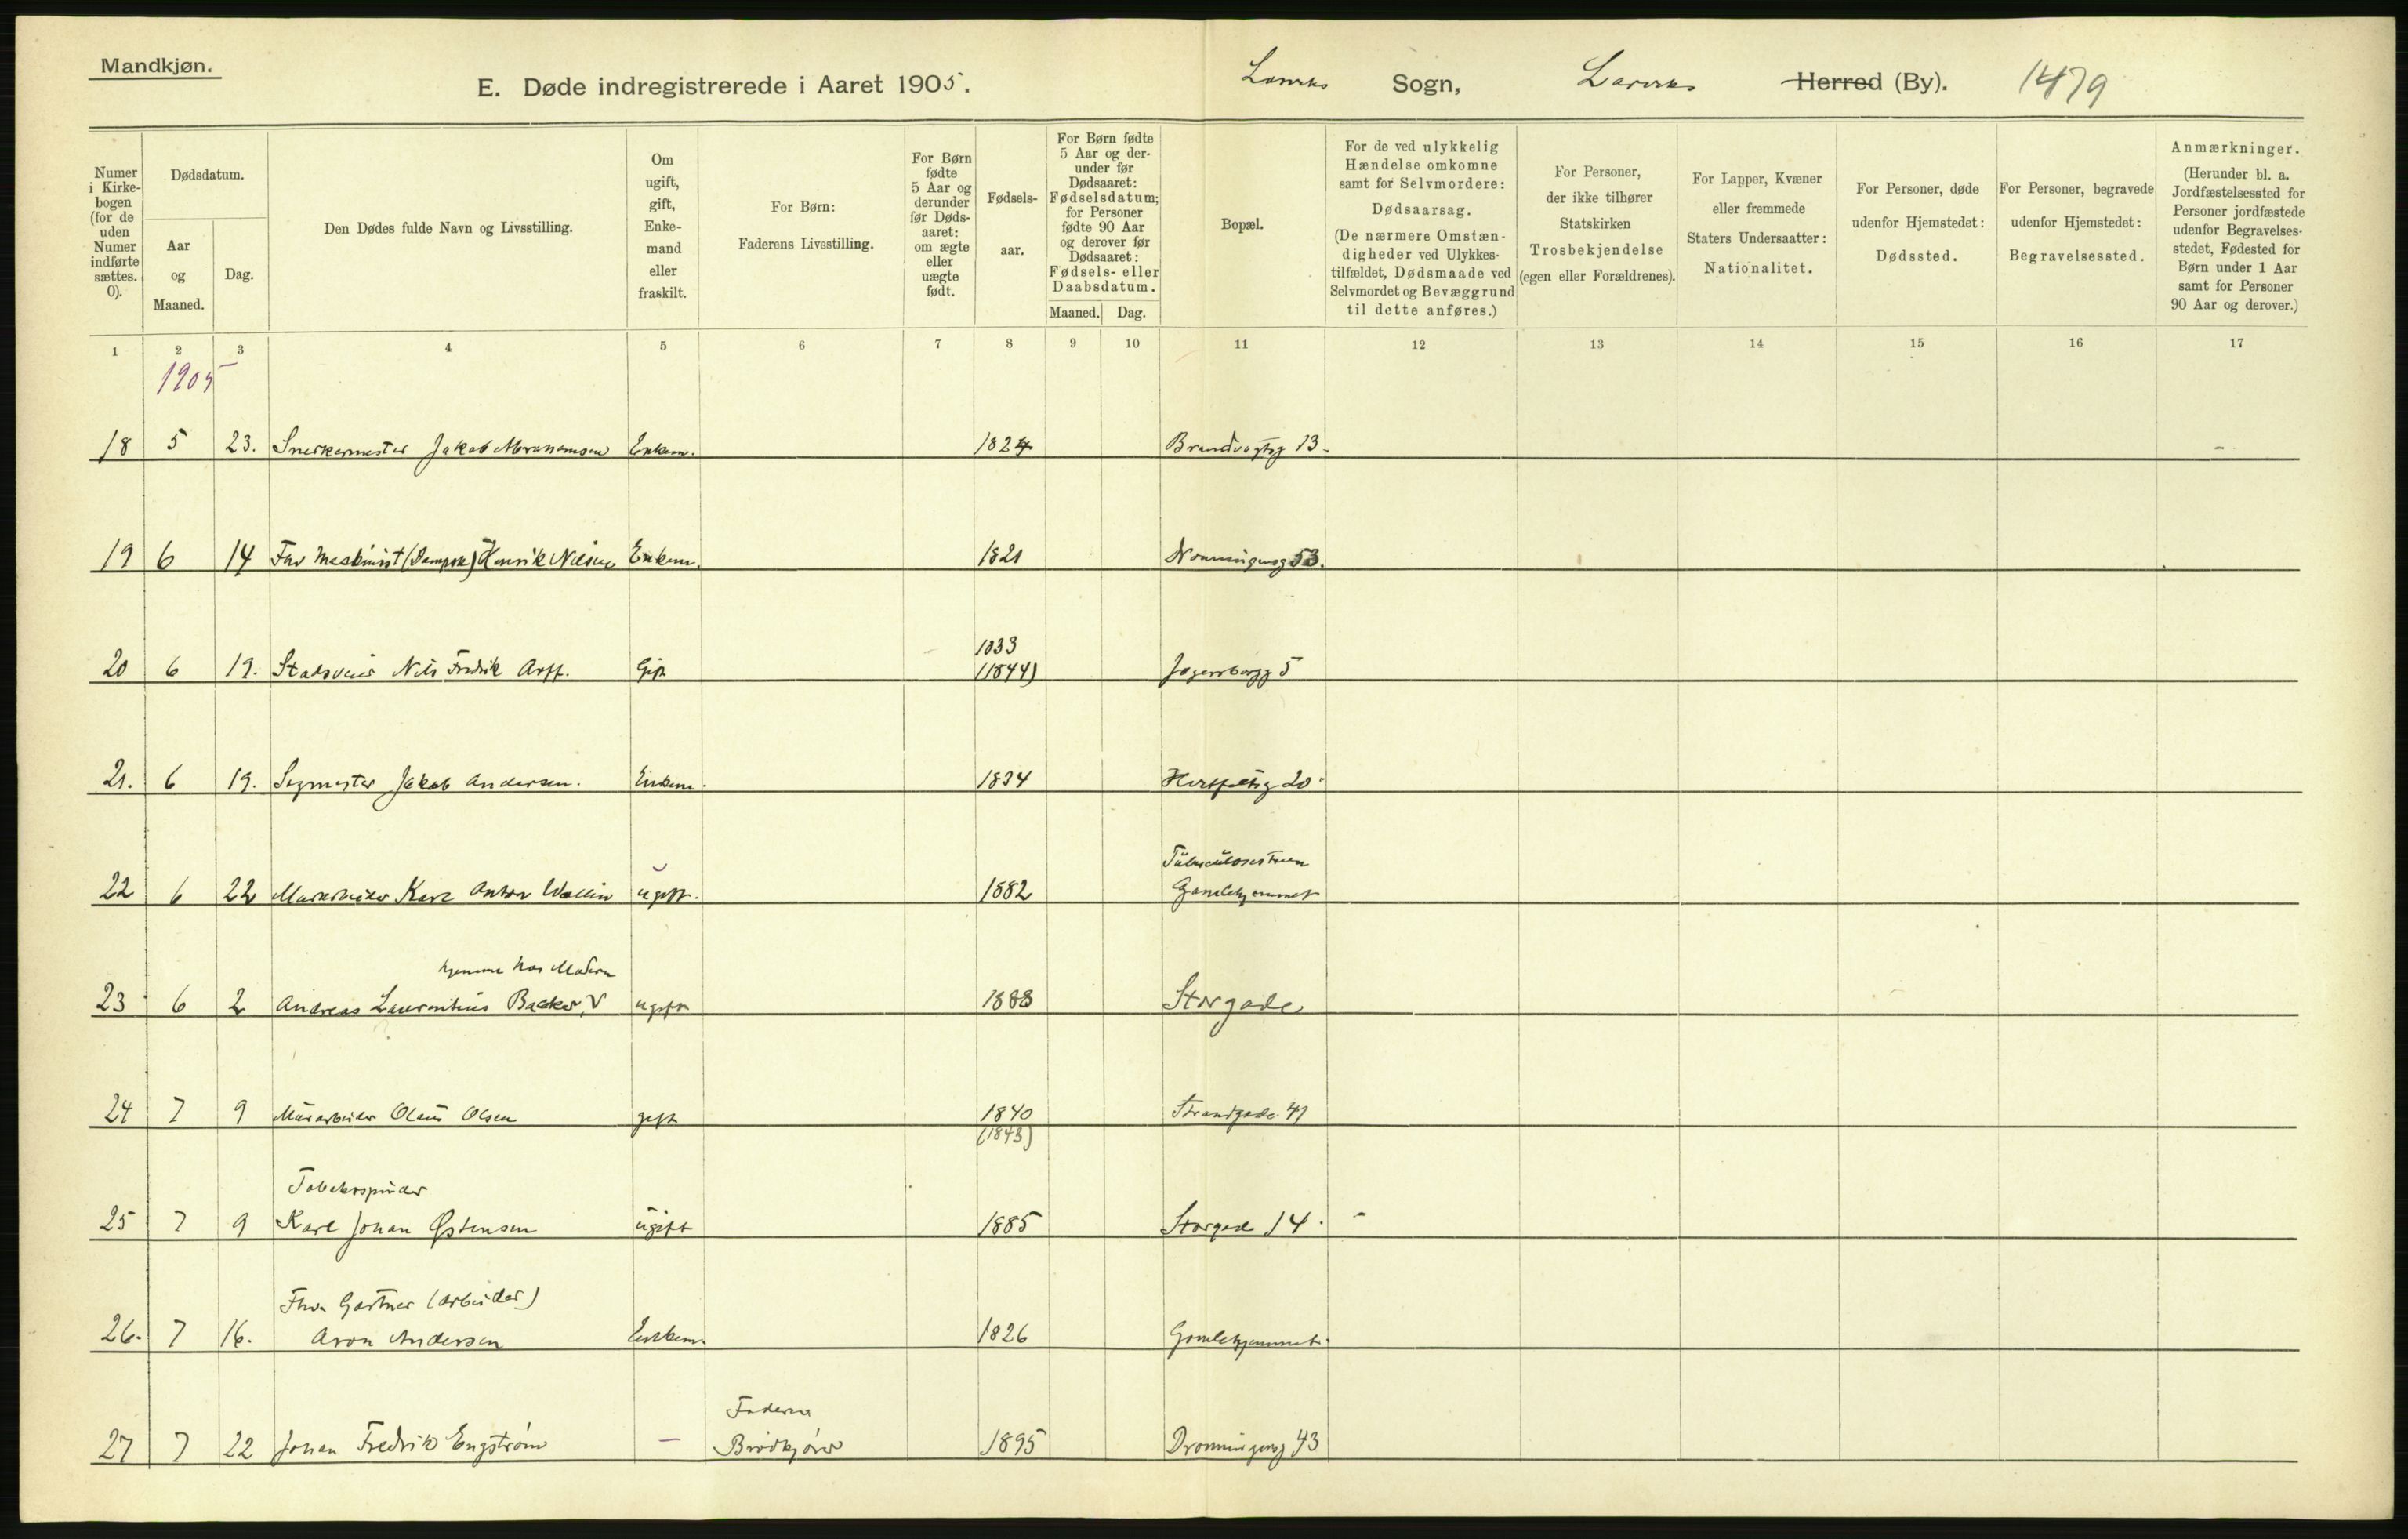 Mandkjøn.
E. Døde indregistrerede i Aaret 1905. Larviks Sogn, Larviks Herred (By). 1479
Numer i Kirkebogen (for de uden Numer indførte sættes. 0).
Dødsdatum.
Aar og Maaned.
Dag.
Den Dødes fulde Navn og Livsstilling.
Om ugift, gift, Enkemand eller fraskilt.
For Børn: Faderens Livsstilling.
For Børn fødte 5 Aar og derunder før Dødsaaret: om ægte eller uægte født.
Fødselsaar.
For Børn fødte 5 Aar og derunder før Dødsaaret: Fødselsdatum; for Personer fødte 90 Aar og derover før Dødsaaret: Fødsels- eller Daabsdatum.
Maaned. Dag.
Bopæl.
For de ved ulykkelig Hændelse omkomne samt for Selvmordere: Dødsaarsag. (De nærmere Omstændigheder ved Ulykkestilfældet, Dødsmaade ved Selvmordet og Bevæggrund til dette anføres.)
For Personer, der ikke tilhører Statskirken Trosbekjendelse (egen eller Forældrenes).
For Lapper, Kvæner eller fremmede Staters Undersaatter: Nationalitet.
For Personer, døde udenfor Hjemstedet: Dødssted.
For Personer, begravede udenfor Hjemstedet: Begravelsessted.
Anmærkninger. (Herunder bl. a. Jordfæstelsessted for Personer jordfæstede udenfor Begravelsesstedet, Fødested for Børn under 1 Aar samt for Personer 90 Aar og derover.)
1 2 3 4 5 6 7 8 9 10 11 12 13 14 15 16 17
1905
18 5 23. Snekermester Jakob Abrahamsen Enkem. 1824 Brandvagtsg 13.
19 6 14 Fhv Maskinist (Dampsk) Henrik Nilsen Enkem. 1821 Dronningensg 53.
1833
20 6 19. Stadsveier Nils Fredrik Arff. Gift (1844) Jegersborgg 5
21. 6 19. Sagmester Jakob Andersen. Enkem. 1834 20.
Tuberculosestuen
22 6 22 Murarbeider Karl Anton Wallin ugift. 1882 Gamlehjemmet
hjemme hos Moderen
23 6 2 Andreas Laurentius Backer V ugift 1888 Storgade
24 7 9 Murarbeider Olaus Olsen gift 1840 Strandgade 41
(1843)
Tobakspinder
25 7 9 Karl Johan Østensen ugift 1885 Storgade 14.
Fhv. Gartner (arbeider)
26. 7 16. Aron Andersen Enkem. 1826 Gamlehjemmet.
Faderen
27 7 22 Johan Fredrik Engstrøm — Brødkjører 1895 Dronningensg 43